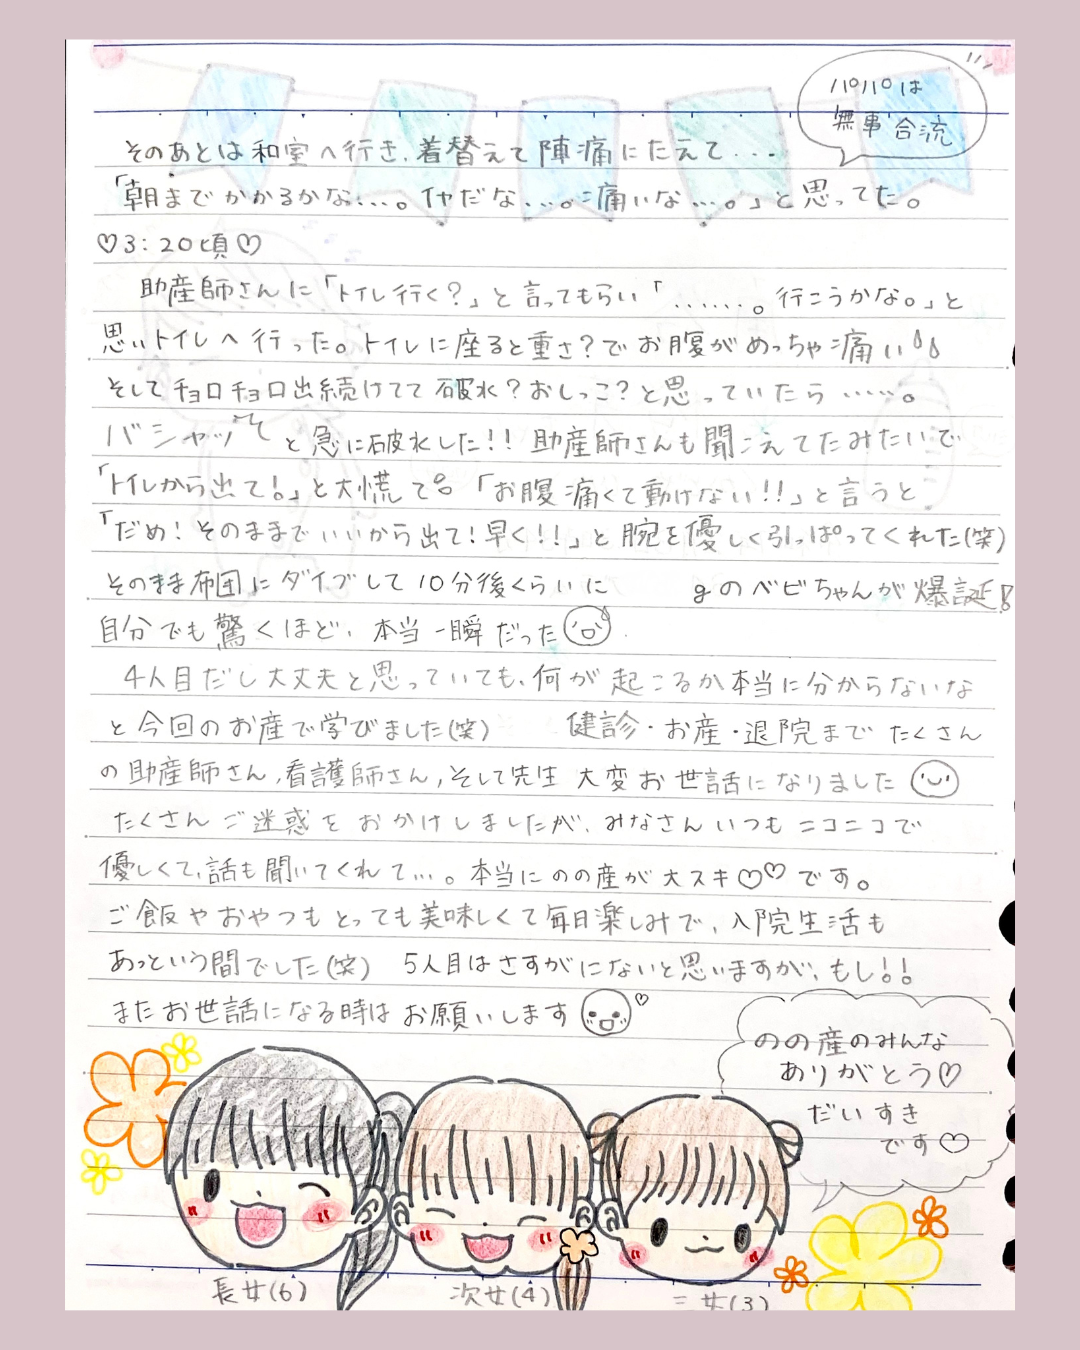 パパは
無事合流
そのあとは和室へ行き、着替えて陣痛にたえて...
「朝までかかるかな...。イヤだな...。痛いな...。」と思ってた。
♡3:20頃♡
助産師さんに「トイレ行く?」と言ってもらい「......。行こうかな。」と
思いトイレへ行った。トイレに座ると重さ?でお腹がめっちゃ痛い
そしてチョロチョロ出続けてて破水?おしっこ?と思っていたら.....。
バシャッと急に破水した!!助産師さんも聞こえてたみたいで
「トイレから出て!」と大慌て 「お腹痛くて動けない!!」と言うと
「だめ!そのままでいいから出て!早く!!」と腕を優しく引っぱってくれた(笑)
そのまま布団にダイブして10分後くらいに gのベビちゃんが爆誕!
自分でも驚くほど、本当一瞬だった
4人目だし大丈夫と思っていても、何が起こるか本当に分からないな
と今回のお産で学びました(笑) 健診・お産・退院までたくさん
の助産師さん,看護師さん,そして先生 大変お世話になりました
たくさんご迷惑をおかけしましたが、みなさんいつもニコニコで
優しくて、話も聞いてくれて...。本当にのの産が大スキ♡♡です。
ご飯やおやつもとっても美味しくて毎日楽しみで、入院生活も
あっという間でした(笑) 5人目はさすがにないと思いますが、もし!!
またお世話になる時はお願いします♡
のの産のみんな
ありがとう♡
だいすき
です♡
長女(6) 次女(4) 三女(3)